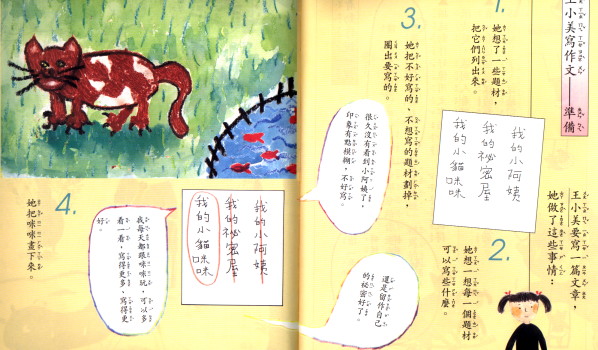 王小美寫作文——準備
王小美要寫一篇文章，
她做了這些事情：
1.
她想了一些題材，
把它們列出來。
我的小阿姨
我的祕密屋
我的小貓咪咪
2.
她想一想每一個題材
可以寫些什麼。
3.
她把不好寫的、不想寫的題材劃掉，
圈出要寫的。
很久沒有看到小阿姨了，
印象有點模糊，不好寫。
還是留作自己
的祕密好了。
我的小阿姨
我的祕密屋
我的小貓咪咪
我每天都跟咪咪玩，可以多
看一看，寫得更多、寫得更
好。
4.
她把咪咪畫下來。